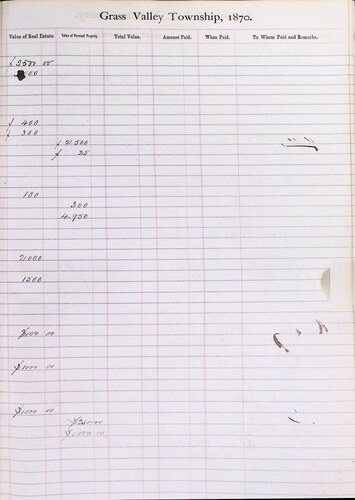 Grass Valley Township, 1870.
Value of Real Estate. Value of Personal Property. Total Value. Amount Paid. When Paid. To Whom Paid and Remarks.
$2500 00
500
$ 400
$ 300
$ 2,500
$ 25
100
300
4,950
2,000
1500
$1000 00
$1000 00
$1000 00
$2000
$1,000 00